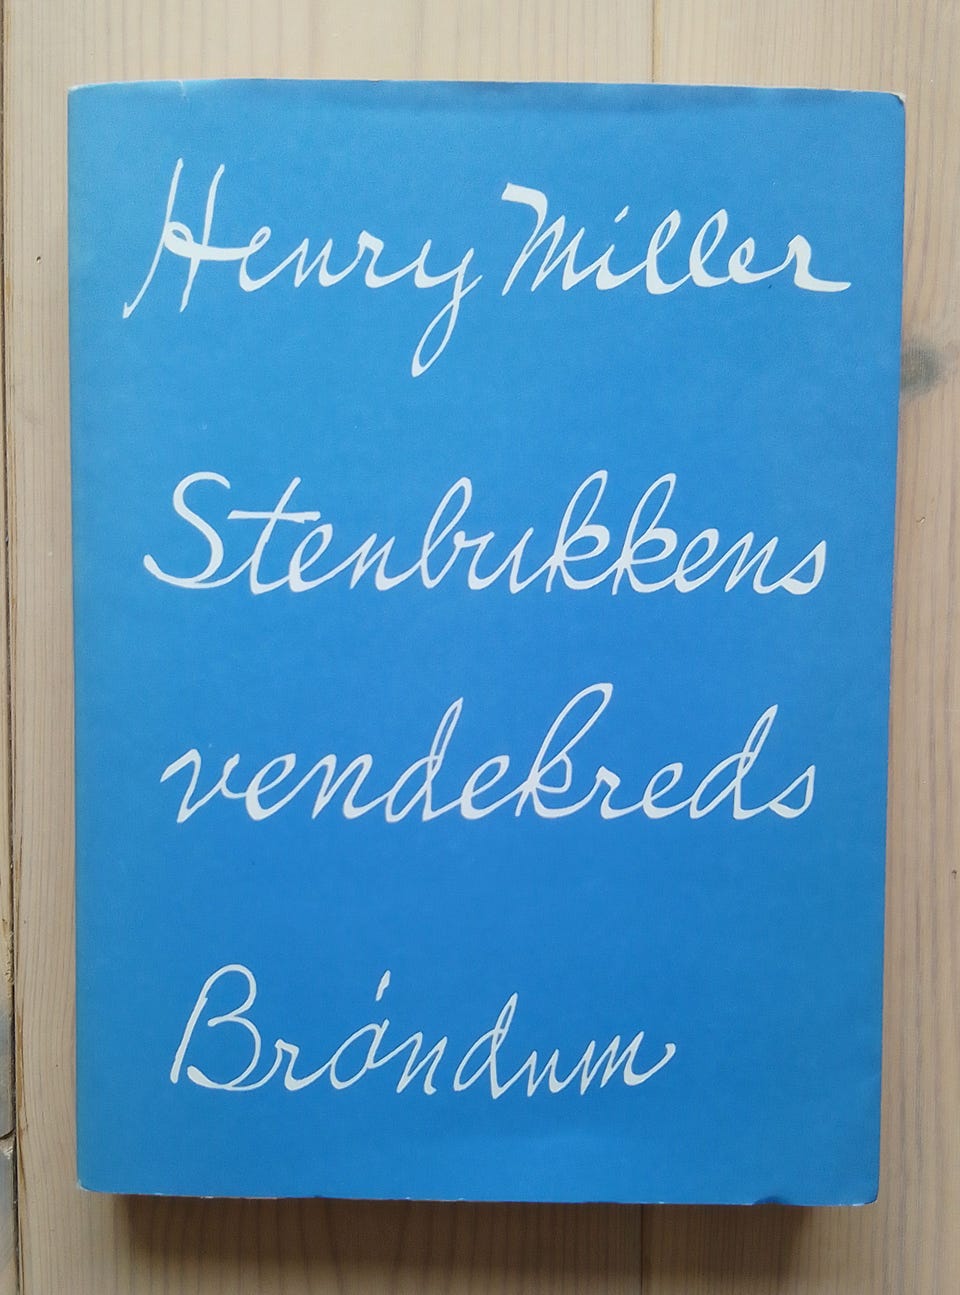 Henry Miller
Stenbukkens
vendekreds
Bróndum